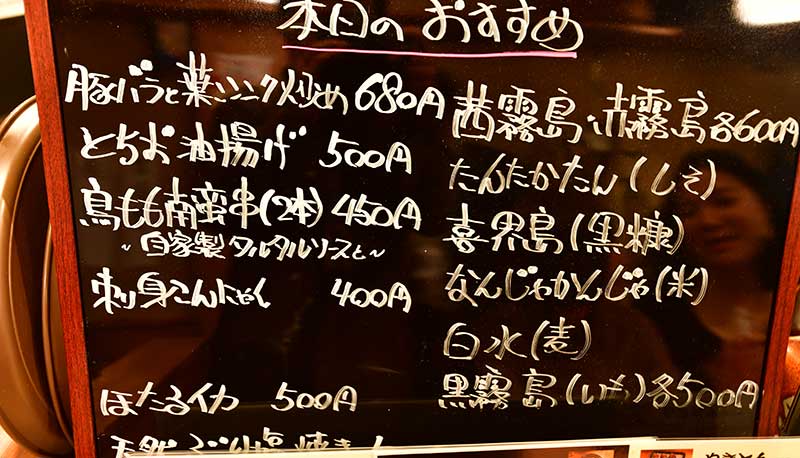 本日のおすすめ
豚バラと葉ニンニク炒め 680円
とちお油揚げ 500円
鳥もも南蛮串(2本) 450円
~自家製タルタルソースと~
刺身こんにゃく 400円
ほたるイカ 500円
天然ぶり塩焼き
茜霧島・赤霧島各600円
たんたかたん(しそ)
喜界島(黒糖)
なんじゃかんじゃ(米)
白水(麦)
黒霧島(いも)各500円